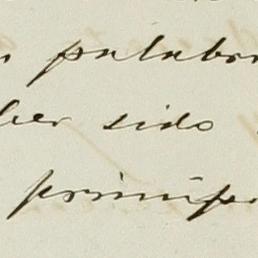 palabr
ber sido
princip